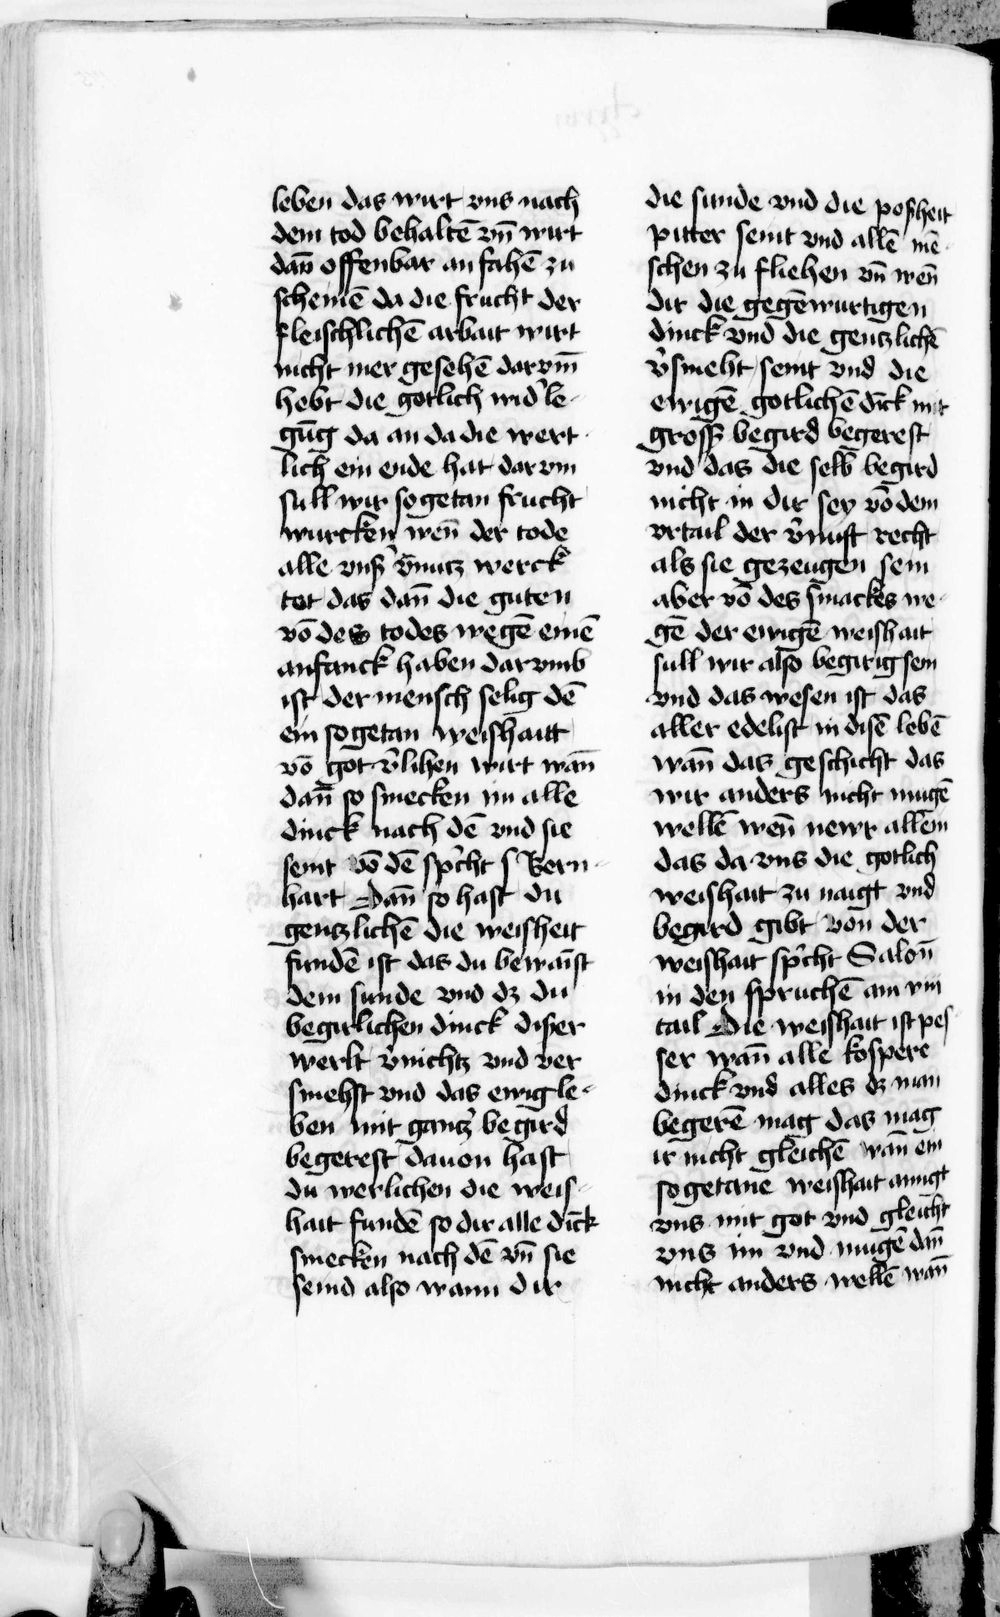 leben das wirt vns nach
dem tod behaltē vn̄ wirt
dan̄ offenbar an fahē zu
scheinē da die frucht der
fleischlichē arbait wirt
nicht mer gesehē darvm̄
hebt die gotlich wid'le-
gūg da an da die wert-
lich ein ende hat dar vm
sull wir so getan frucht
wurcken wen̄ der tode
alle vnß' v̄nutz werck
tot das dan̄ die guten
vō des todes wegē einē
anfanck haben dar vmb
ist der mensch selig dē
ein so getan weishaitt
vō got v'lihen wirt wan̄
dan̄ so smecken im alle
dinck nach dē vnd sie
seint vō dē sp'cht s Bern-
hart Dan̄ so hast du
gentzlichē die weisheit
fundē ist das du bewaīst
dein sunde vnd dz du
begirlichen dinck diser
werlt v'nichtz vnd ver
smehst vnd das ewig le-
ben mit gantz' begird
begerest dauon hast
du werlichen die weis-
hait fundē so dir alle dīck
smecken nach dē vn̄ sie
seind also wann dir
die sunde vnd die poßheit
pitter seint vnd allē mē-
schen zu fliehen vn̄ wen̄
dir die gegēwurtigen
dinck vnd die gentzlichē
v'smeht seint vnd die
ewigē gotlichē dīck mit
gross' begird begerest
vnd das die selb begird
nicht in dir sey vō dem
vrtail der v'nuft recht
als sie gezeugen sein
aber vō des smackes we-
gē der ewigē weishait
sull wir also begirig sein
vnd das wesen ist das
aller edelist in disē lebē
wan̄ das geschicht das
wir anders nicht mugē
wellē wen̄ newr allein
das da vns die gotlich
weishait zu naigt vnd
begird gibt von der
weishait sp'cht Salon̄
in den spruchē am viii
tail Die weishait ist pes
ser wan̄ alle kospere
dinck vnd alles dz man
begerē mag das mag
ir nicht gleichē wan̄ ein
so getane weishait ainigt
vns mit got vnd gleicht
vns im vnd mugē dan̄
nicht anders wellē wan̄